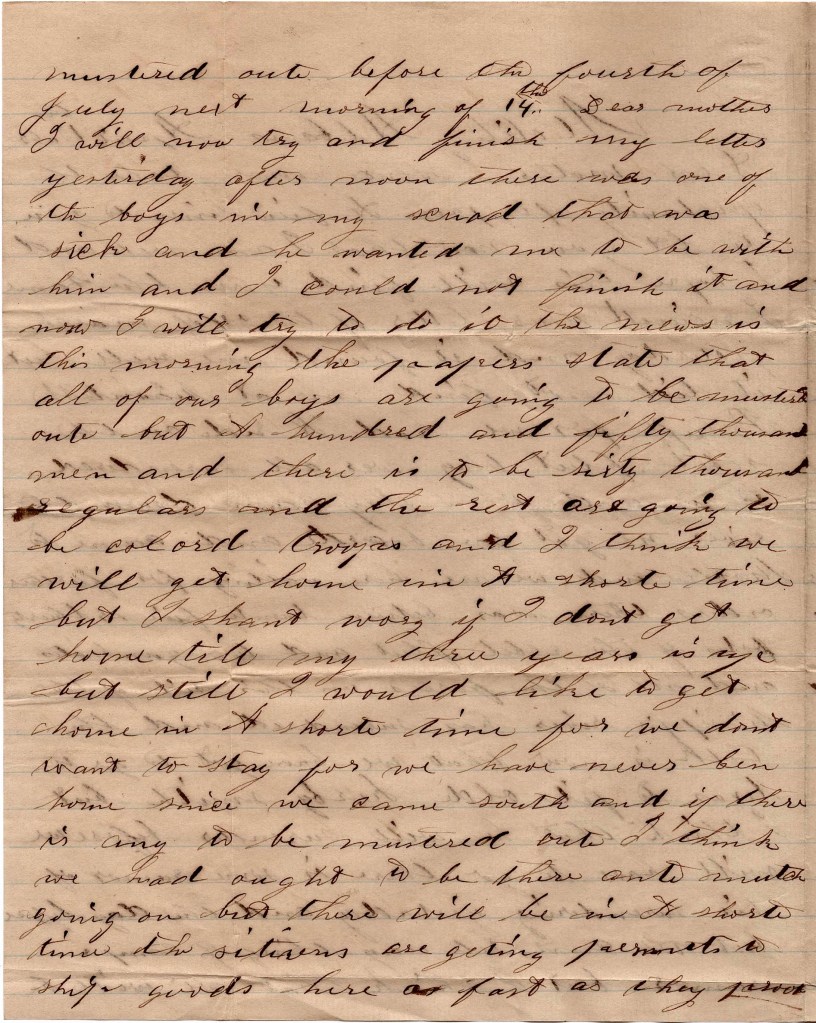 mustered oute before the fourth of
July next morning of 14th Dear mother
I will now try and finish my letter
yesterday after noon there was one of
th boys in my scruad that was
sick and he wanted me to be with
him and I could not finish it and
now I will try to do it the niews is
this morning the papers state that
all of our boys are going to be musterd
oute but A hundred and fifty thousand
men and there is to be sixty thousant
regulars and the rest are going to
be colord troops and I think we
will get home im A shorte time
but I shant wory if I dont get
home till my three years is up
but still I would like to get
home in A shorte time for we dont
want to stay for we have never ben
home since we came south and if there
is any to be mustered oute I think
we had ought to be there ante mutch
going on but there will be in A shorte
time the sitizens are geting permets to
ship goods here as fast as they